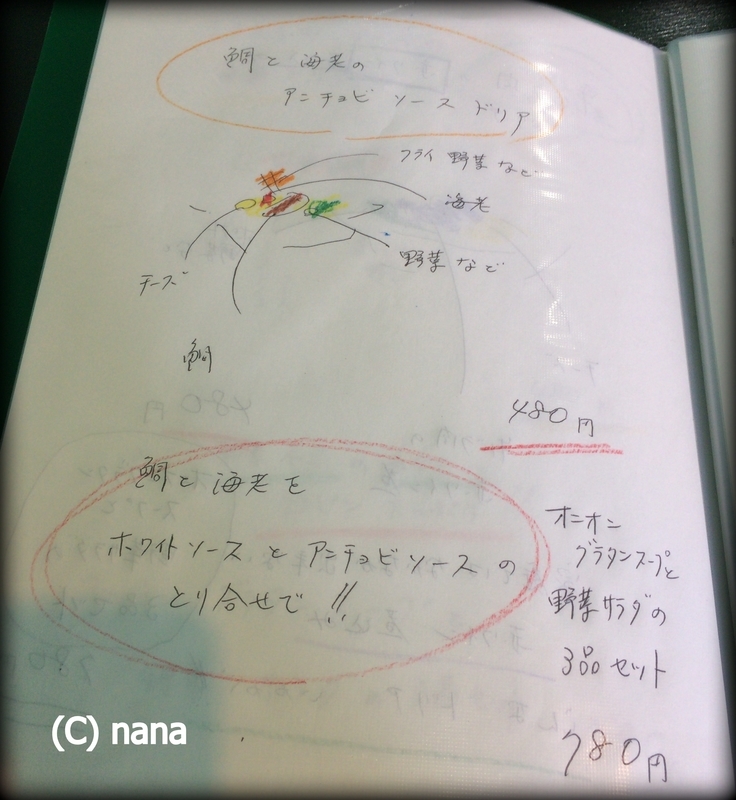 鯛と海老の
アンチョビソースドリア
フライ野菜など
海老
野菜など
チーズ
鯛
480円
鯛と海老を
ホワイトソースとアンチョビソースの
とり合せで!!
オニオン
グラタンスープと
野菜サラダの
3品セット
780円
(C) nana